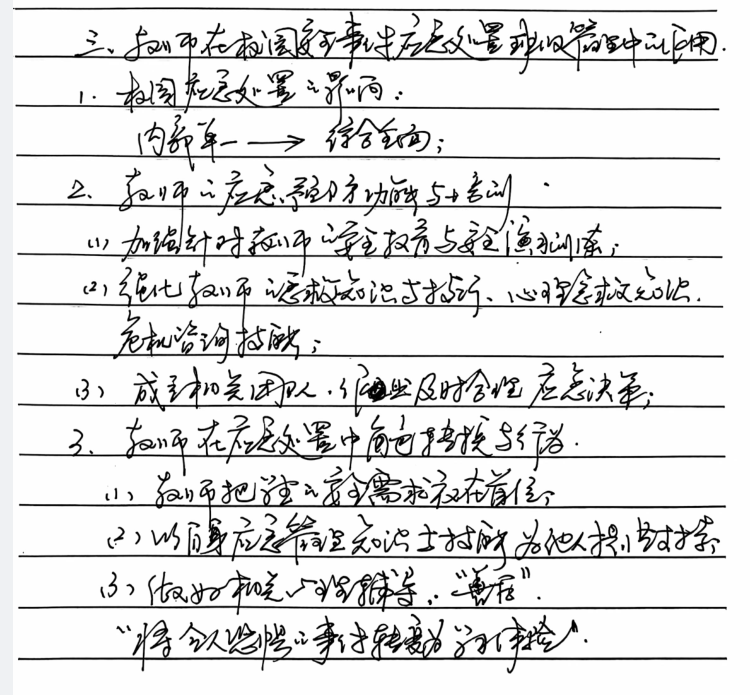 三、教师在校园安全事件应急处置班级管理中的作用.
1. 校园应急处置的影响：
内部单一 → 综合全面；
2. 教师的应急预防功能与培训
(1) 加强针对教师的安全教育与安全演习训练；
(2) 强化教师的急救知识与技巧、心理急救知识.
危机咨询技能；
(3) 成立相关团队.作出及时合理应急决策；
3. 教师在应急处置中角色转换与行为.
(1) 教师把学生的安全需求放在首位；
(2) 以自身应急管理知识与技能为他人提供支持；
(3) 做好相关心理辅导，“善后”.
“将令人恐惧的事件转变为学习体验”.